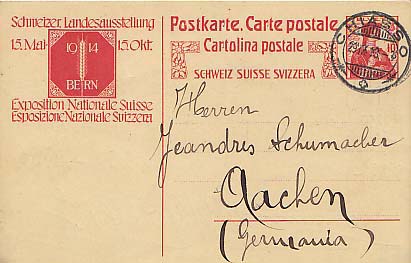 Schweizer. Landesausstellung
15. Mai 15. Okt.
19 14
BERN
Exposition Nationale Suisse
Esposizione Nazionale Svizzera
Postkarte. Carte postale
Cartolina postale
SCHWEIZ SUISSE SVIZZERA
CHIASSO
10
Herren
Jeandris Schumacher
Aachen
(Germania)